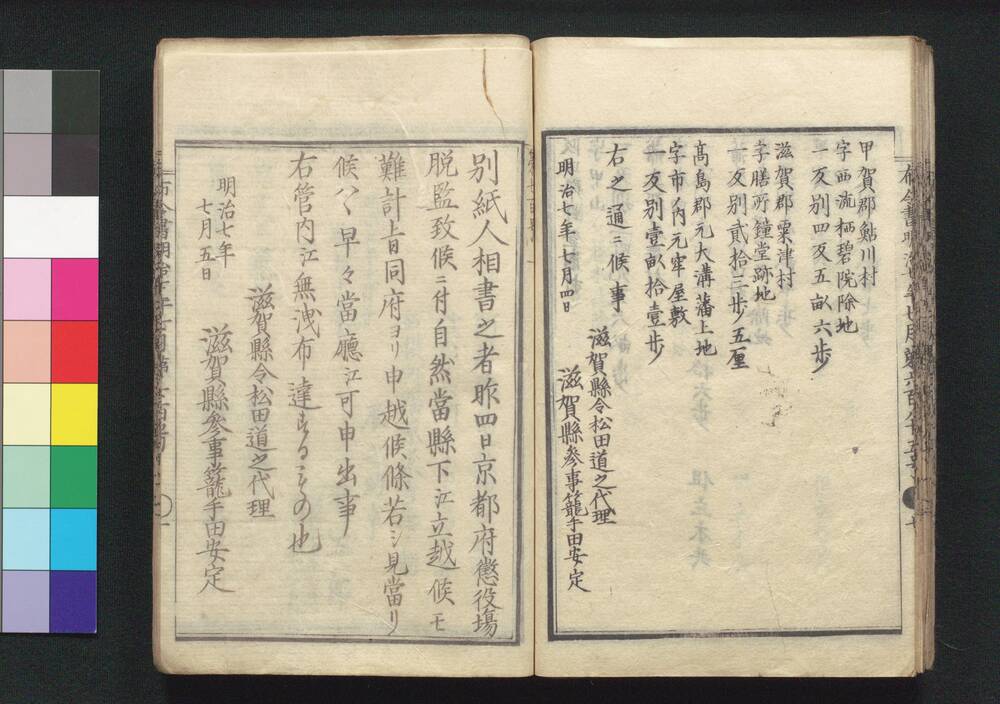 甲賀郡鮎川村
字西流栖碧院除地
一反別四反五畝六歩
滋賀郡粟津村
字膳所鐘堂跡地
一反別貳拾三歩五厘
髙島郡元大溝藩上地
字市ノ内元牢屋敷
一反別壹畝拾壹歩
右之通ニ候事
明治七年七月四日
滋賀縣令松田道之代理
滋賀縣參事籠手田安定
別紙人相書之者昨四日京都府懲役場
脱監致候ニ付自然當縣下江立越候モ
難計旨同府ヨリ申越候條若シ見當リ
候ハヽ早々當廳江可申出事
右管内江無洩布達するもの也
明治七年
七月五日
滋賀縣令松田道之代理
滋賀縣參事籠手田安定